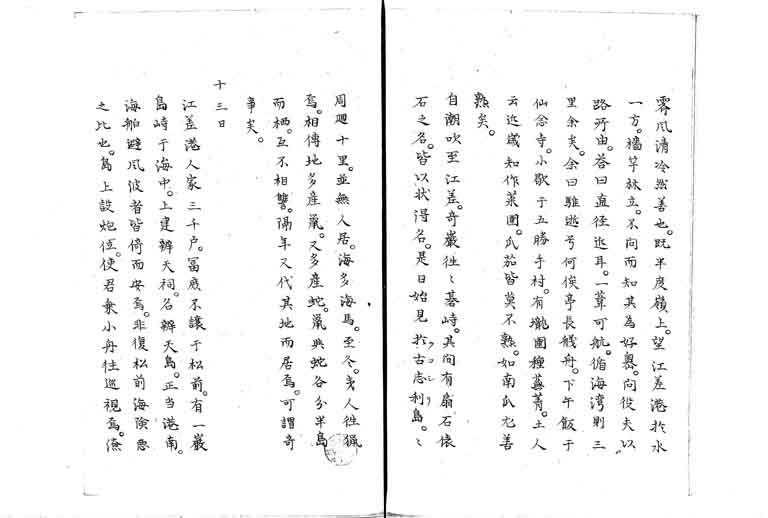 零凡清冷然善也。既半度嶺上。望江差港於水
一方。檣竿林立。不問而知其為好嶴。問役夫以
路所由。答曰直径迩耳。一葦可航。循海湾則三
里余矣。余曰騅逝兮何俟亭長艤舟。下午飯于
仙念寺。小歇于五勝手村。有壠圃種蕪菁。土人
云近歳知作菜圃。瓜茄皆莫不熟。如南瓜尤善
熟矣。
自潮吹至江差。奇巌往〻碁峙。其間有扇石俵
石之名。皆以状得名。是日始見於古志利島。〻
ヲコシリ
周廻十里。並無人居。海多海馬。至冬。夷人往猟
焉。相傳地多産鼠。又多産蛇。鼠與蛇各分半島
而栖。互不相讐。隔年又代其地而居焉。可謂奇
事矣。
十三日
江差港人家三千戸。冨庶不譲于松前。有一巌
島峙于海中。上建辨天祠。名辨天島。正当港南。
海舶避風波者皆倚而安焉。非復松前海険悪
之比也。島上設炮位。使君乗小舟往巡視焉。僚